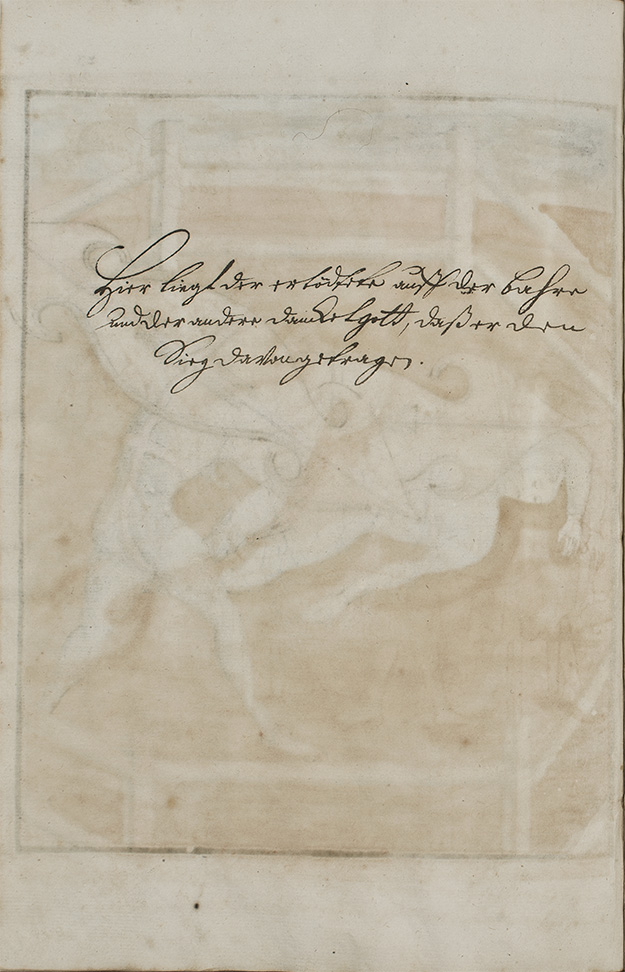 Hier liegt der ertödtete auff der bahre
und der andere dancket gott, daß er den
Sieg davon getragen.